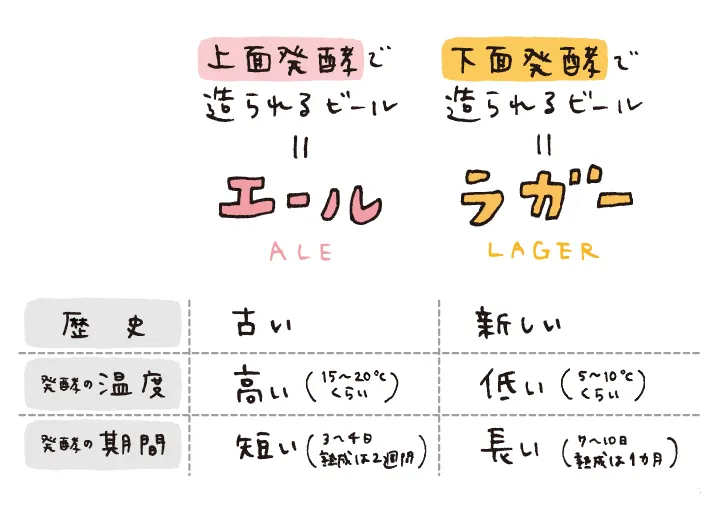 上面発酵で
造られるビール
=
エール
ALE
下面発酵で
造られるビール
=
ラガー
LAGER
歴史 古い 新しい
発酵の温度 高い (15〜20℃くらい) 低い (5〜10℃くらい)
発酵の期間 短い (3〜4日 熟成は2週間) 長い (7〜10日 熟成は1カ月)